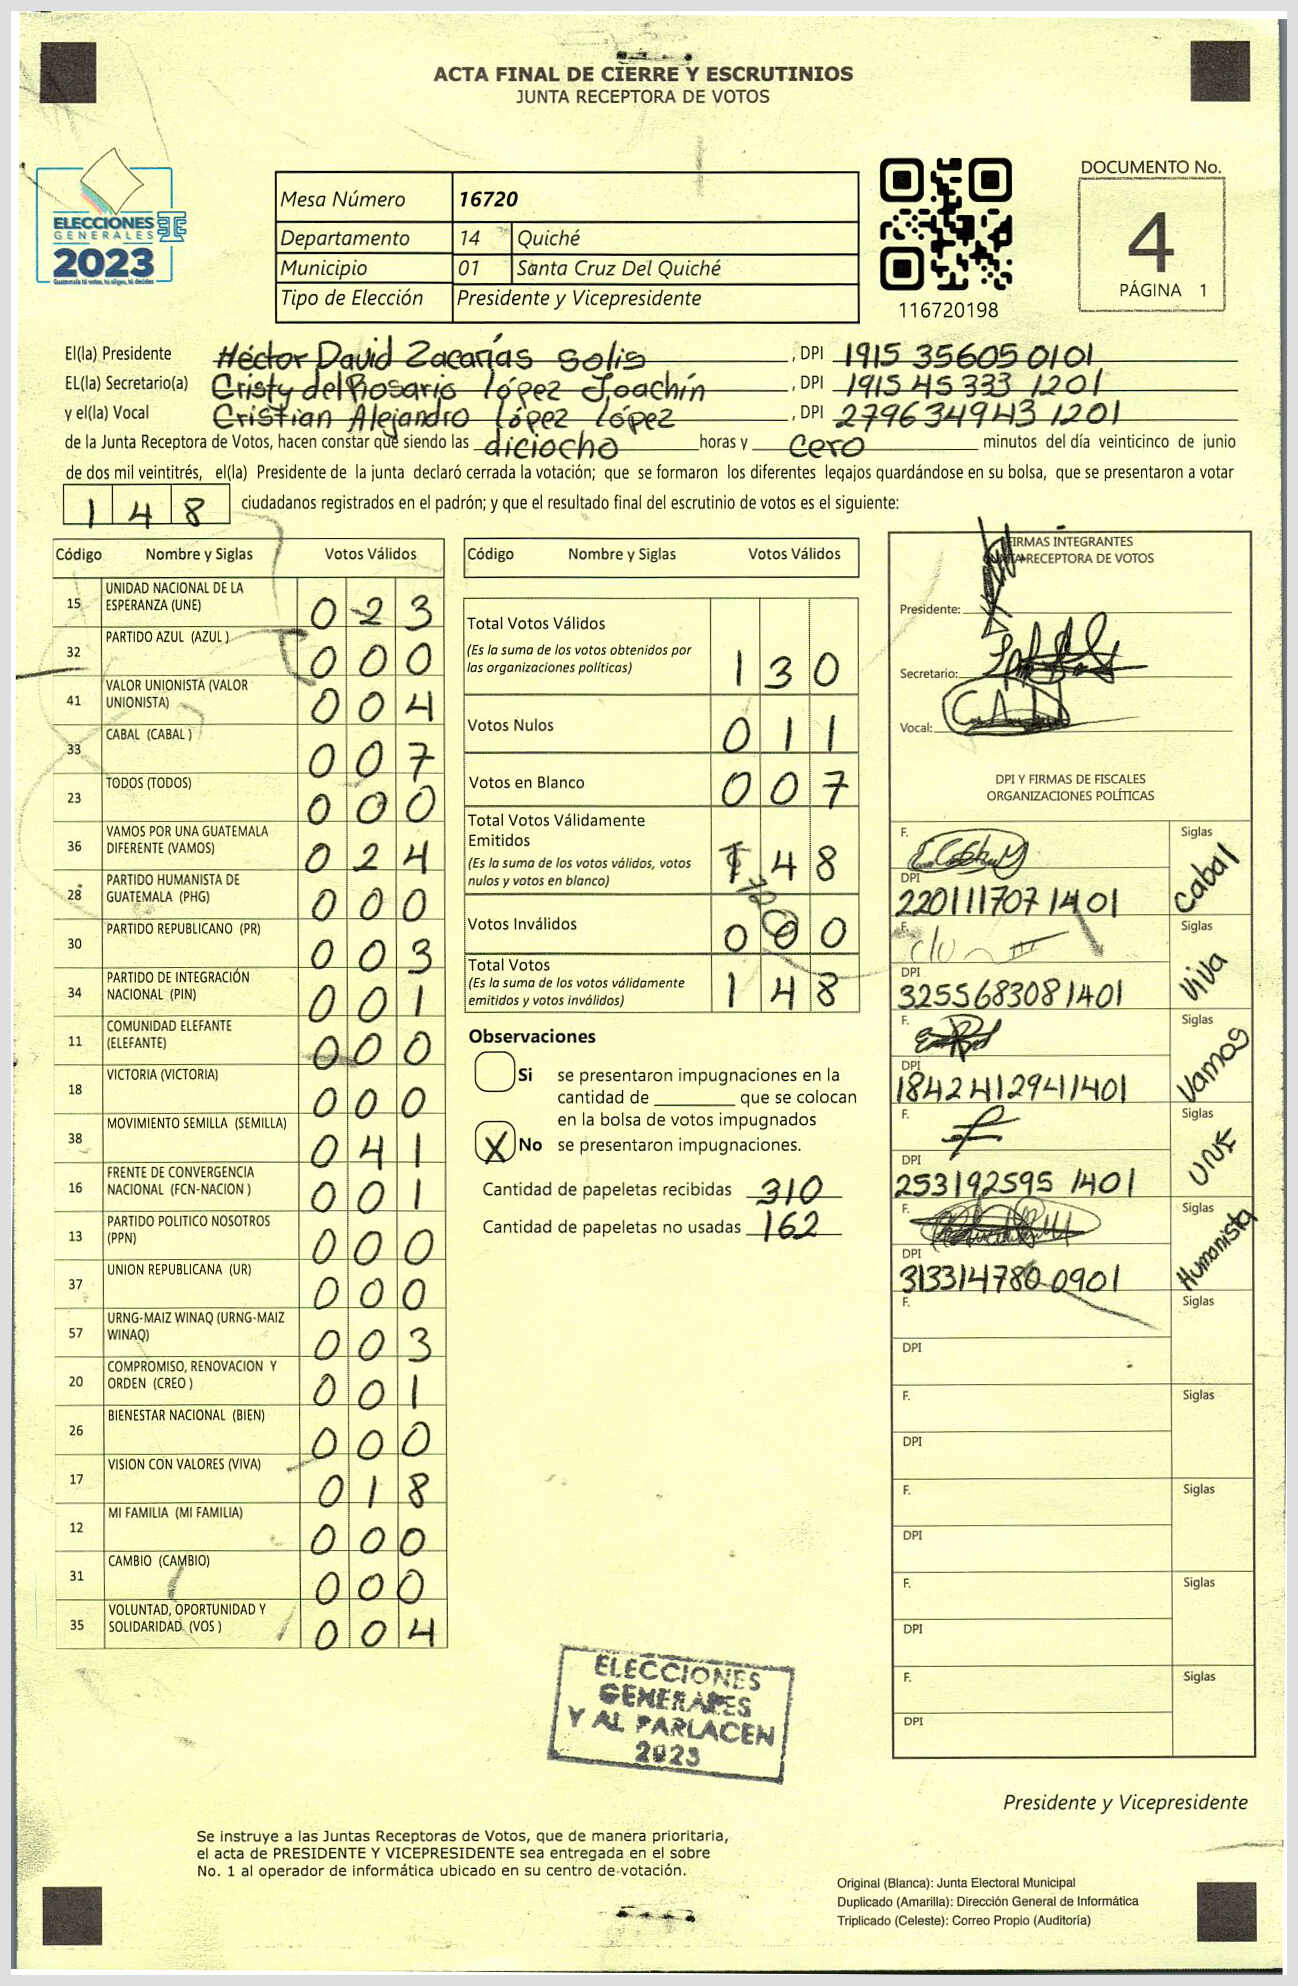 ACTA FINAL DE CIERRE Y ESCRUTINIOS
JUNTA RECEPTORA DE VOTOS
ELECCIONES
GENERALES
2023
Mesa Número 16720
Departamento 14 Quiché
Municipio 01 Santa Cruz Del Quiché
Tipo de Elección Presidente y Vicepresidente
116720198
DOCUMENTO No.
4
PÁGINA 1
El(la) Presidente Héctor David Zacarías Solis, DPI 1915 35605 0101
EL(la) Secretario(a) Cristy del Rosario López Joachín, DPI 1915 45 333 1201
y el(la) Vocal Cristian Alejandro López López, DPI 279634943 1201
de la Junta Receptora de Votos, hacen constar que siendo las diciocho horas y cero minutos del día veinticinco de junio
de dos mil veintitrés, el(la) Presidente de la junta declaró cerrada la votación; que se formaron los diferentes legajos quardándose en su bolsa, que se presentaron a votar
148 ciudadanos registrados en el padrón; y que el resultado final del escrutinio de votos es el siguiente:
Código Nombre y Siglas Votos Válidos
15 UNIDAD NACIONAL DE LA ESPERANZA (UNE) 023
32 PARTIDO AZUL (AZUL ) 000
41 VALOR UNIONISTA (VALOR UNIONISTA) 004
33 CABAL (CABAL ) 007
23 TODOS (TODOS) 000
36 VAMOS POR UNA GUATEMALA DIFERENTE (VAMOS) 024
28 PARTIDO HUMANISTA DE GUATEMALA (PHG) 000
30 PARTIDO REPUBLICANO (PR) 003
34 PARTIDO DE INTEGRACIÓN NACIONAL (PIN) 001
11 COMUNIDAD ELEFANTE (ELEFANTE) 000
18 VICTORIA (VICTORIA) 000
38 MOVIMIENTO SEMILLA (SEMILLA) 041
16 FRENTE DE CONVERGENCIA NACIONAL (FCN-NACION ) 001
13 PARTIDO POLITICO NOSOTROS (PPN) 000
37 UNION REPUBLICANA (UR) 000
57 URNG-MAIZ WINAQ (URNG-MAIZ WINAQ) 003
20 COMPROMISO, RENOVACION Y ORDEN (CREO ) 001
26 BIENESTAR NACIONAL (BIEN) 000
17 VISION CON VALORES (VIVA) 018
12 MI FAMILIA (MI FAMILIA) 000
31 CAMBIO (CAMBIO) 000
35 VOLUNTAD, OPORTUNIDAD Y SOLIDARIDAD (VOS ) 004
Código Nombre y Siglas Votos Válidos
Total Votos Válidos 130
(Es la suma de los votos obtenidos por
las organizaciones políticas)
Votos Nulos 011
Votos en Blanco 007
Total Votos Válidamente
Emitidos 148
(Es la suma de los votos válidos, votos
nulos y votos en blanco)
Votos Inválidos 000
Total Votos 148
(Es la suma de los votos válidamente
emitidos y votos inválidos)
Observaciones
Si se presentaron impugnaciones en la
cantidad de ________ que se colocan
en la bolsa de votos impugnados
X No se presentaron impugnaciones.
Cantidad de papeletas recibidas 310
Cantidad de papeletas no usadas 162
FIRMAS INTEGRANTES
JUNTA RECEPTORA DE VOTOS
Presidente:
Secretario:
Vocal:
DPI Y FIRMAS DE FISCALES
ORGANIZACIONES POLÍTICAS
F. Siglas Cabal
DPI 220111707 1401
F. Siglas Viva
DPI 3255683081401
F. Siglas Vamos
DPI 1842412941401
F. Siglas UNE
DPI 253192595 1401
F. Siglas Humanista
DPI 313314780 0901
F. Siglas
DPI
F. Siglas
DPI
F. Siglas
DPI
F. Siglas
DPI
F. Siglas
DPI
ELECCIONES
GENERALES
Y AL PARLACEN
2023
Presidente y Vicepresidente
Se instruye a las Juntas Receptoras de Votos, que de manera prioritaria,
el acta de PRESIDENTE Y VICEPRESIDENTE sea entregada en el sobre
No. 1 al operador de informática ubicado en su centro de votación.
Original (Blanca): Junta Electoral Municipal
Duplicado (Amarilla): Dirección General de Informática
Triplicado (Celeste): Correo Propio (Auditoría)